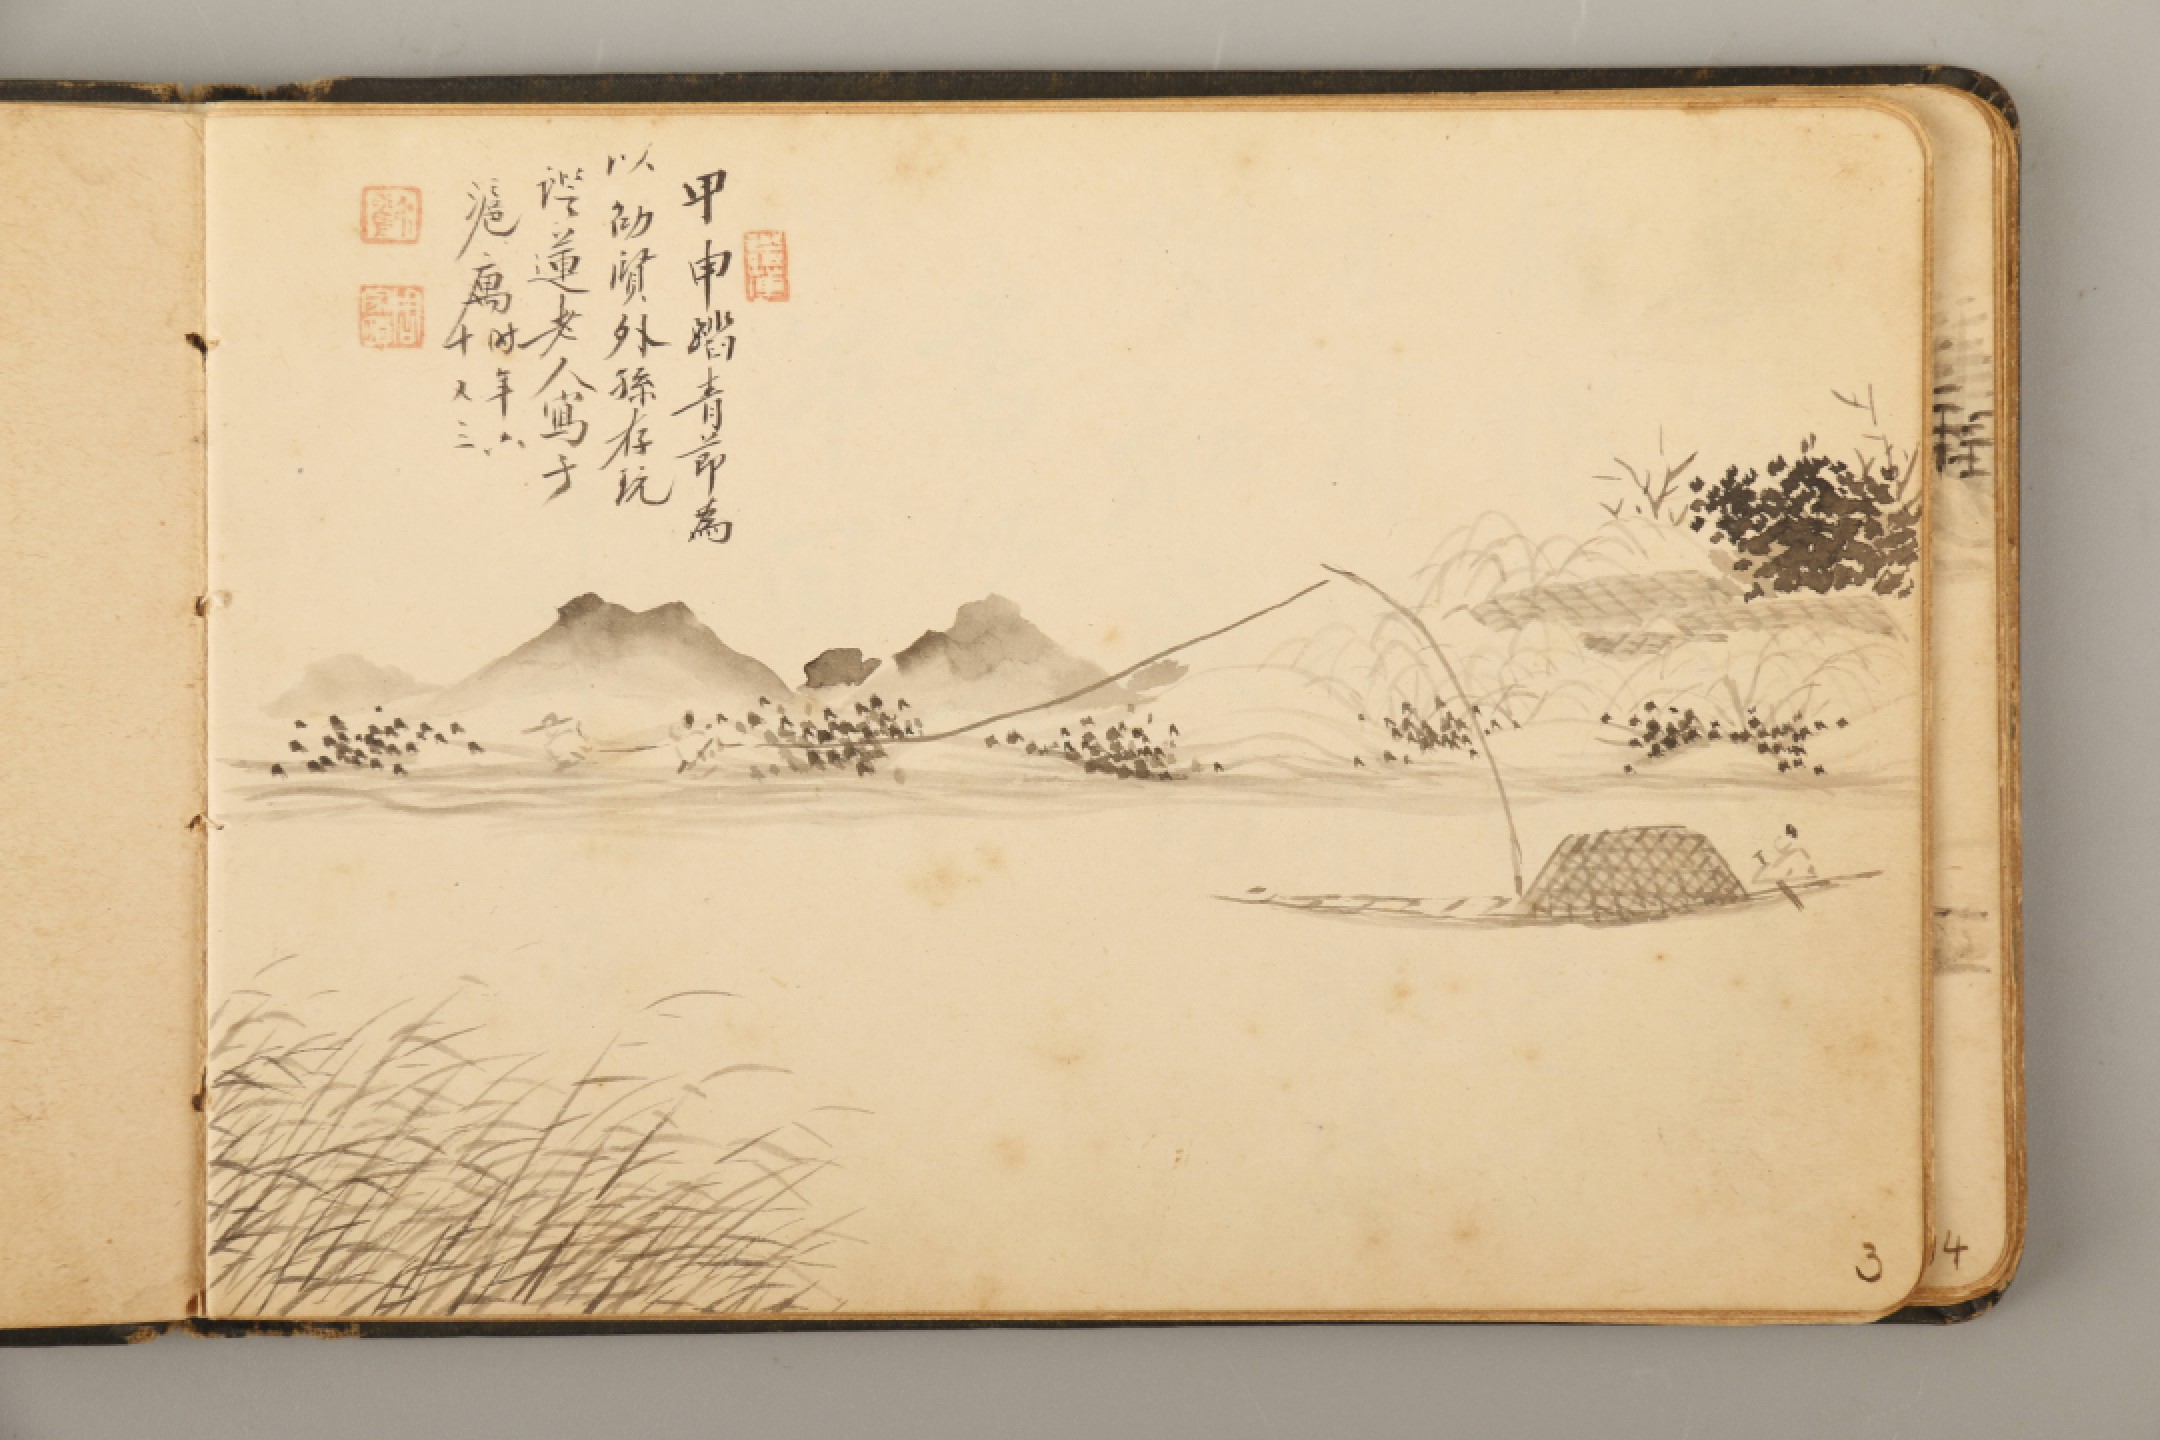 甲申踏青節為
以劬賢外孫存玩
蓮老人寫于
滬寓時年六
十又三
3
14